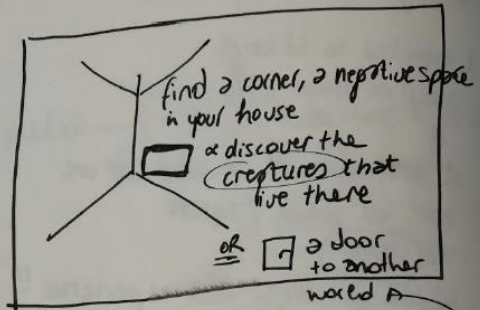 find a corner, a negative space
in your house
& discover the
creatures that
live there
OR a door
to another
world